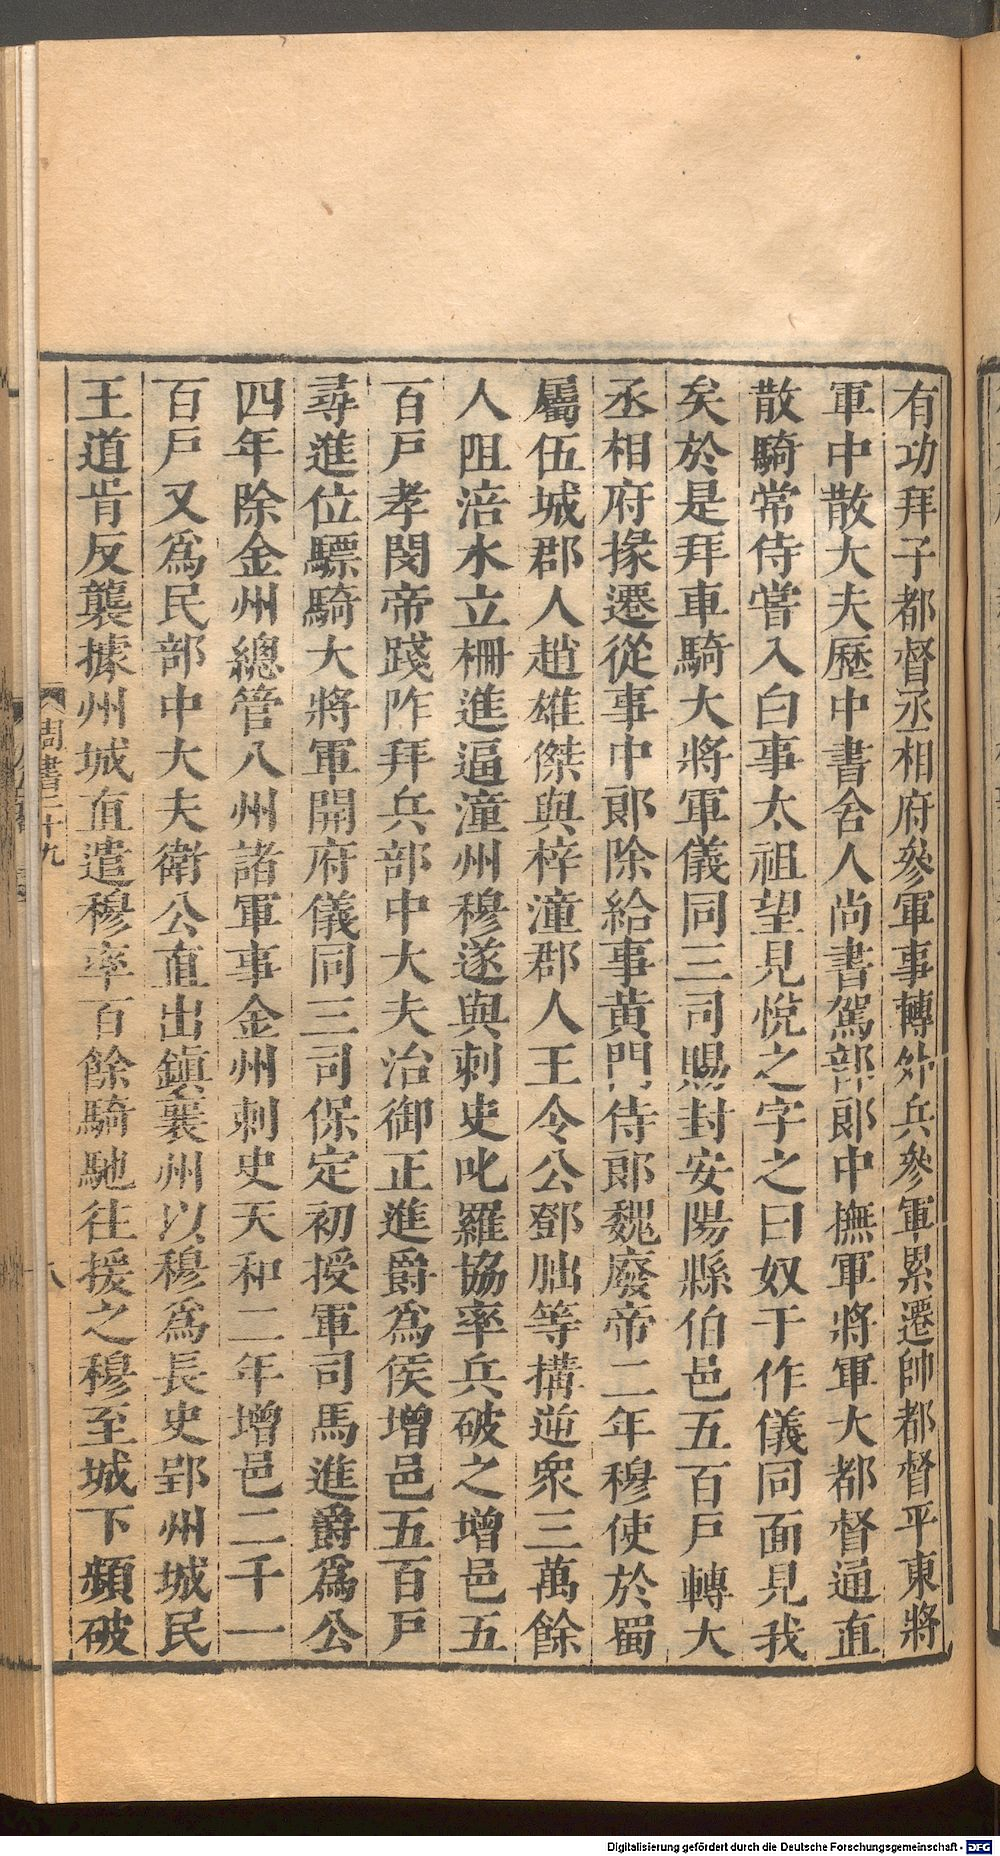 有功拜子都督丞相府參軍事轉外兵參軍累遷帥都督平東將
軍中散大夫歷中書舍人尚書駕部郞中撫軍將軍大都督通直
散騎常侍嘗入白事太祖望見悅之字之曰奴于作儀同面見我
矣於是拜車騎大將軍儀同三司賜封安陽縣伯邑五百戸轉大
丞相府掾遷從事中郞除給事黃門侍郞魏廢帝二年穆使於蜀
屬伍城郡人趙雄傑與梓潼郡人王令公鄧朏等搆逆衆三萬餘
人阻涪水立柵進逼潼州穆遂與刺史叱羅協率兵破之增邑五
百戸孝閔帝踐阼拜兵部中大夫治御正進爵爲侯增邑五百戸
尋進位驃騎大將軍開府儀同三司保定初授軍司馬進爵爲公
四年除金州總管八州諸軍事金州刺史天和二年增邑二千一
百戸又爲民部中大夫衛公直出鎭襄州以穆爲長史郢州城民
王道肯反襲據州城直遣穆率百餘騎馳往援之穆至城下頻破
周書二十九
八
Digitalisierung gefördert durch die Deutsche Forschungsgemeinschaft - DFG